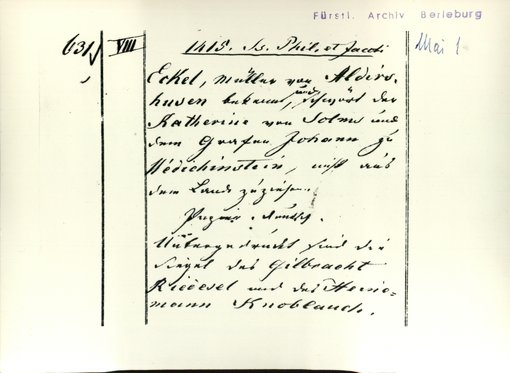 Fürstl. Archiv Berleburg
631, VIII 1415. Ss. Phil. et Jacobi Mai 1
Eckel, Müller von Alders-
husen bekennt, und schwört der
Katherine von Solms und
dem Grafen Johann zu
nicht aus
dem Lande zuziehen.
Papier. deutsch.
sind die
Siegel des Gilbracht
Riedesel und des Heine-
mann Knoblauch.